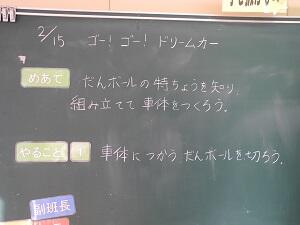 2/15 ゴー！ゴー！ドリームカー
めあて だんボールの特ちょうを知り、
組み立てて車体をつくろう。
やること 1 車体につかうだんボールを切ろう。
副班長